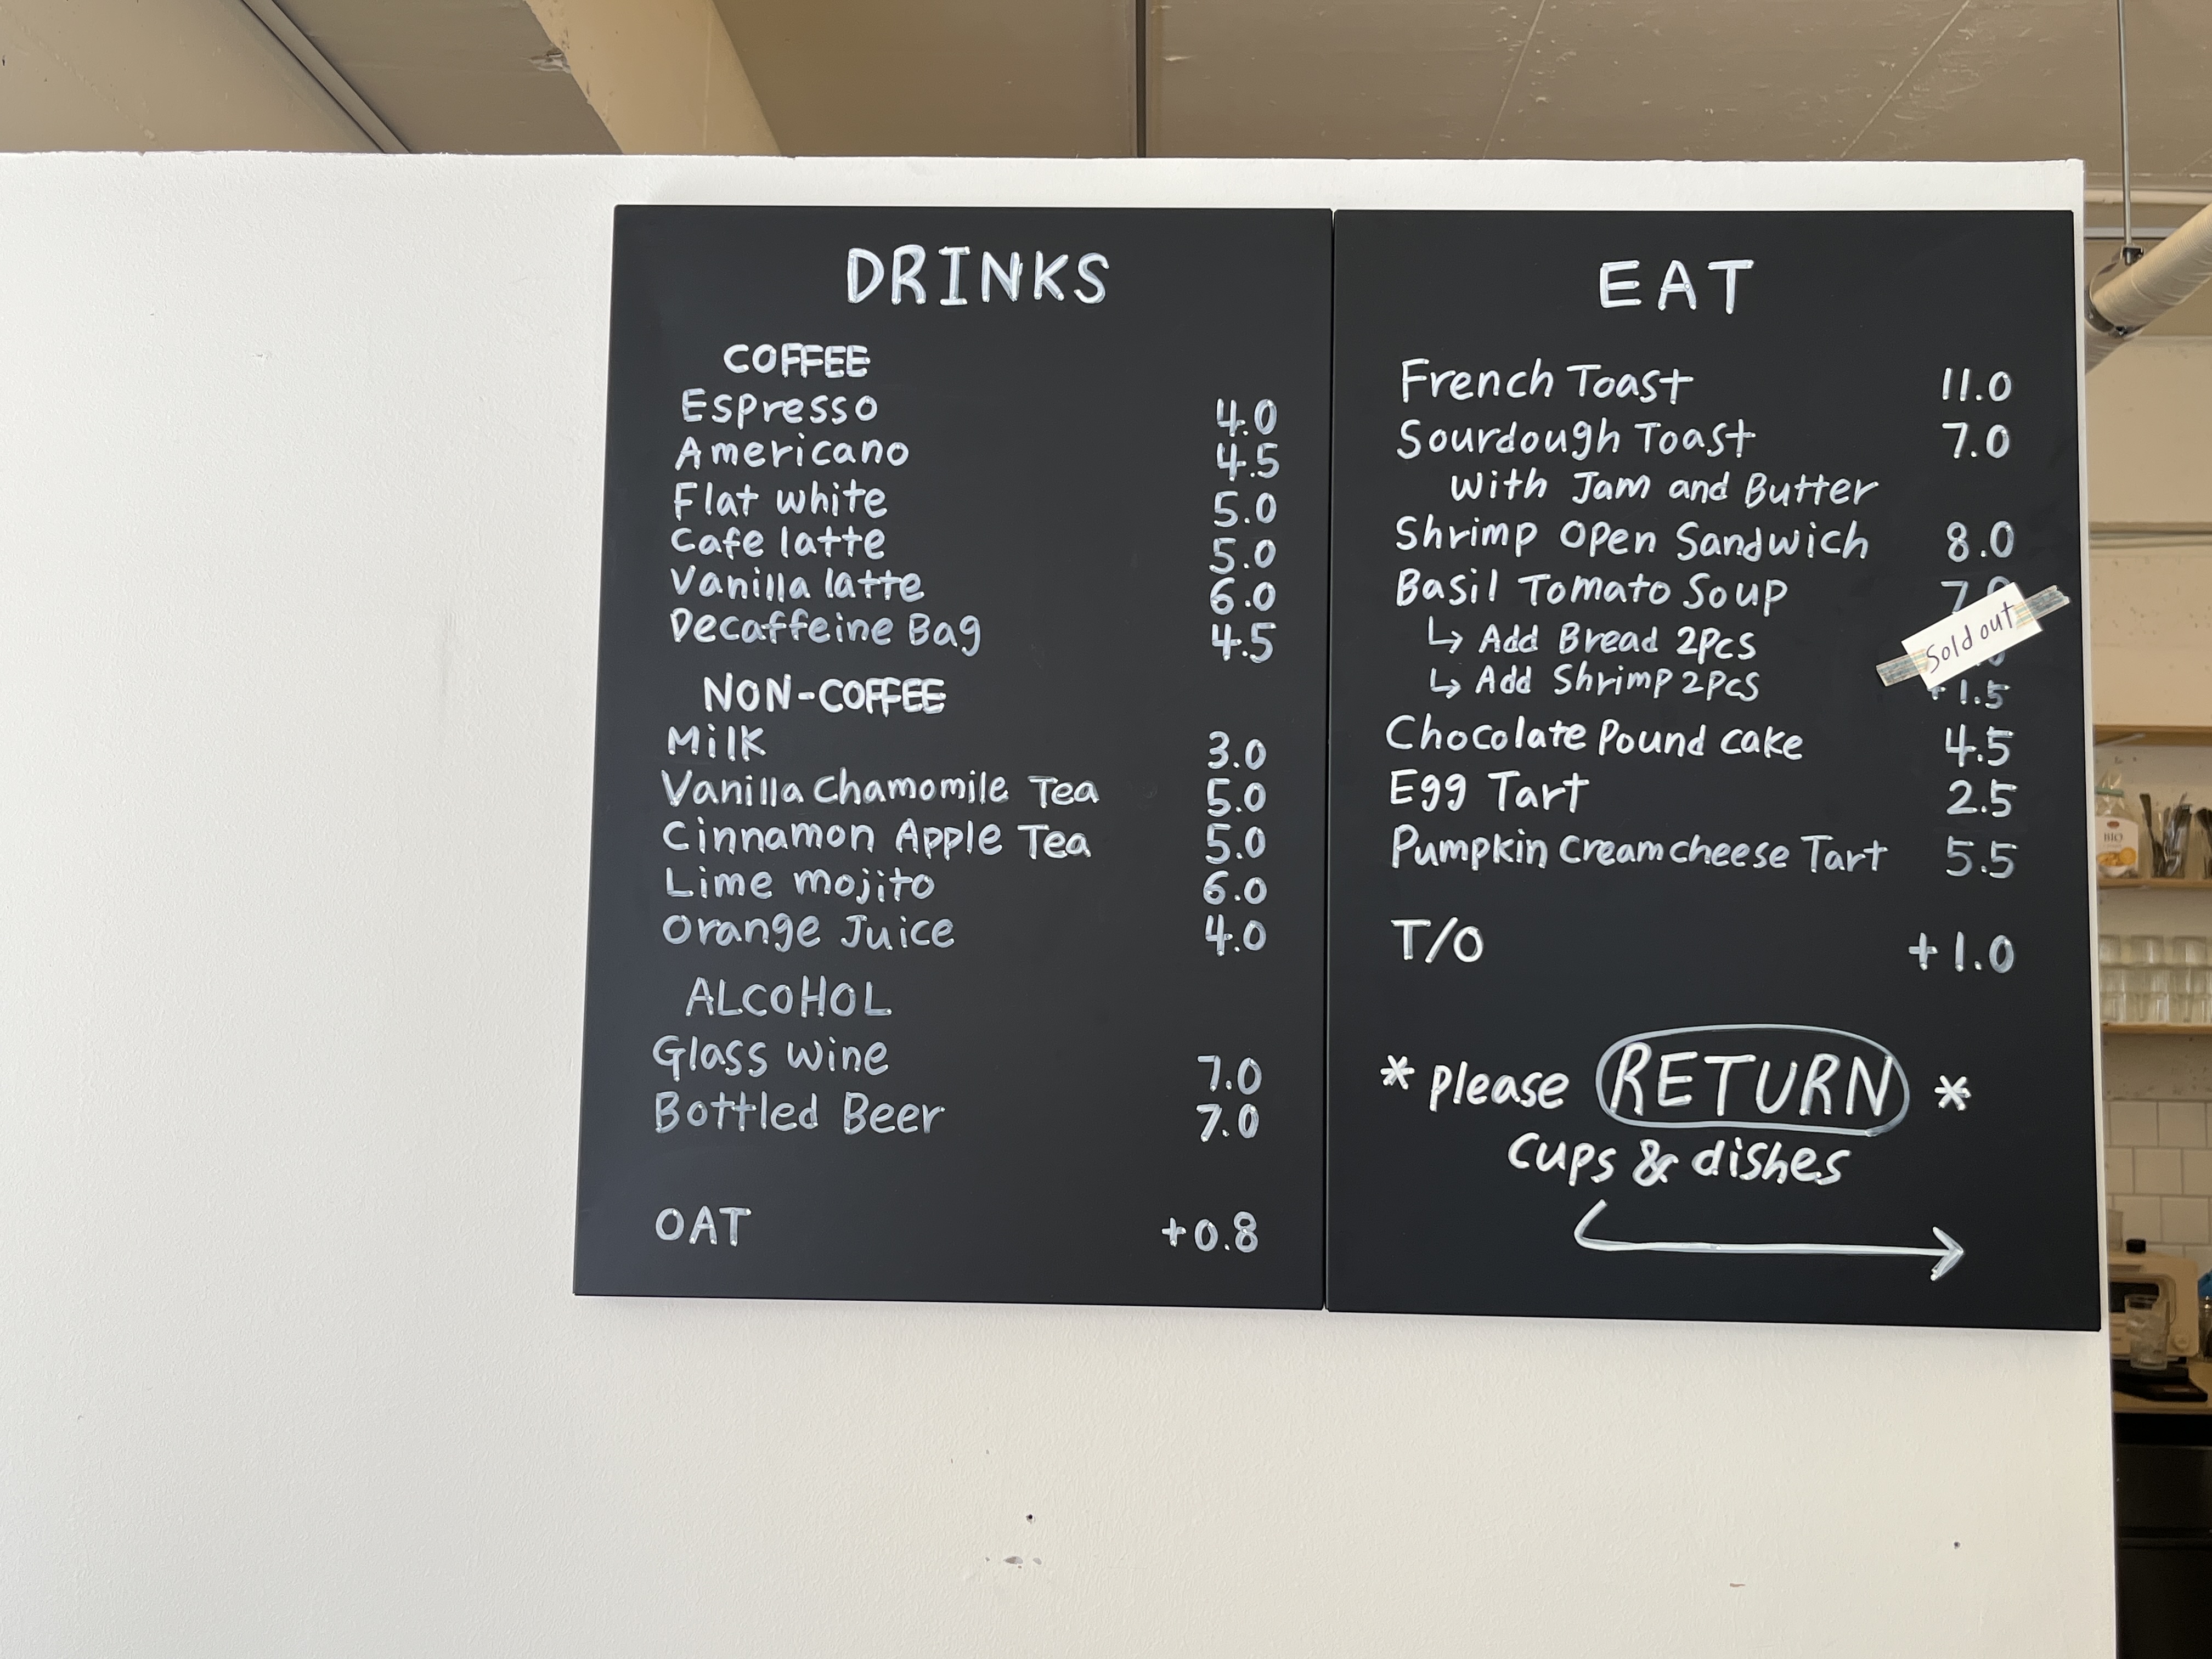 DRINKS
COFFEE
Espresso 4.0
Americano 4.5
Flat white 5.0
Cafe latte 5.0
Vanilla latte 6.0
Decaffeine Bag 4.5
NON-COFFEE
Milk 3.0
Vanilla Chamomile Tea 5.0
Cinnamon Apple Tea 5.0
Lime mojito 6.0
Orange Juice 4.0
ALCOHOL
Glass wine 7.0
Bottled Beer 7.0
OAT +0.8
EAT
French Toast 11.0
Sourdough Toast 7.0
with Jam and Butter
Shrimp Open Sandwich 8.0
Basil Tomato Soup
Sold out
↳ Add Bread 2pcs
↳ Add Shrimp 2pcs +1.5
Chocolate Pound cake 4.5
Egg Tart 2.5
Pumpkin Creamcheese Tart 5.5
T/O +1.0
* please RETURN *
cups & dishes
BIO